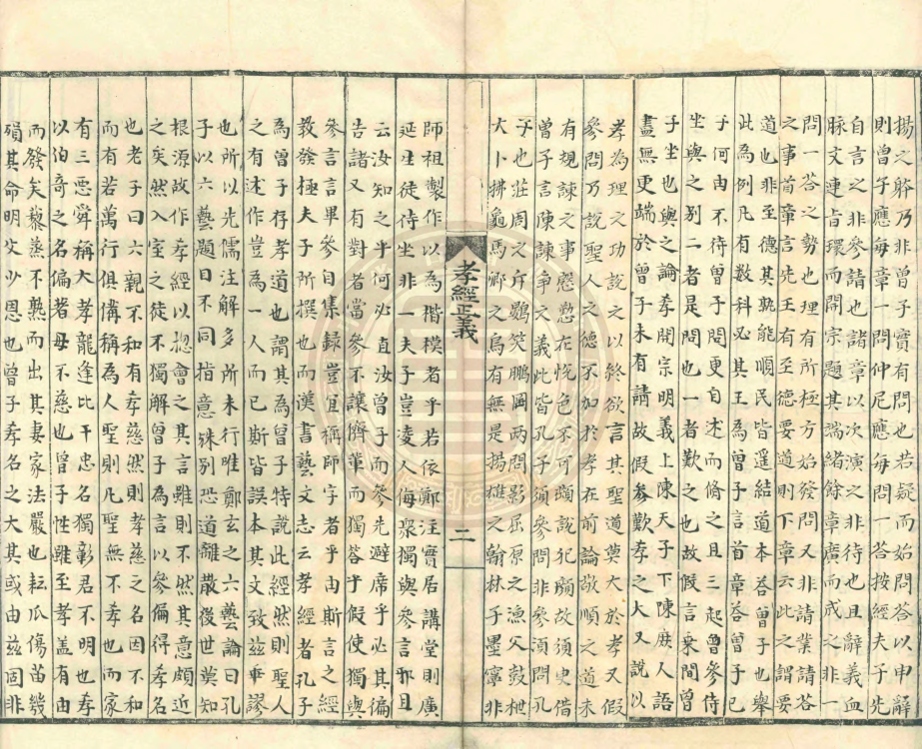 揚之躰乃非曾子實有問也若疑而問荅以申辭
則曾子應每章一問仲尼應每問一荅按經夫子先
自言之非參請也諸章以次演之非待也且辭義血
脉文連旨環而開宗題其端緒餘章廣而成之非一
問一荅之勢也理有所極方始發問又非請業請荅
之事首章言先王有至德要道則下章云此之謂要
道也非至德其孰能順民皆遥結道本荅曾子也舉
此為例凡有數科必其主為曾子言首章荅曾子已
了何由不待曾子問更自述而脩之且三起曾參侍
坐與之别二者是問也一者歎之也故假言乘間曾
子坐也與之論孝開宗明義上陳天子下陳庶人語
盡無更端於曾子未有請故假參歎孝之大又說以
孝為理之功說之以終欲言其聖道莫大於孝又假
參問乃說聖人之德不加於孝在前論敬順之道未
有規諫之事慇懃在悅色不可頓說犯顏故須更借
曾子言陳諫争之義此皆孔子須參問非參須問孔
子也莊周之斥鷃笑鵬罔兩問影屈原之漁父鼓枻
大卜拂龜馬卿之烏有無是揚雄之翰林子墨寧非
孝經正義
二
師祖製作以為楷模者乎若依鄭注實居講堂則廣
延生徒侍坐非一夫子豈淩人侮衆獨與參言邪且
云汝知之乎何必直汝曾子而參先避席乎必其徧
告諸又有對者當參不讓儕輩而獨荅乎假使獨與
參言言畢參自集録豈宜稱師字者乎由斯言之經
教發極夫子所撰也而漢書藝文志云孝經者孔子
為曾子存孝道也謂其為曾子特說此經然則聖人
之有述作豈為一人而已斯皆誤本其文致兹乖謬
也所以先儒注解多所未行唯鄭玄之六藝論曰孔
子以六藝題目不同指意殊别恐道離散後世莫知
根源故作孝經以揔會之其言雖則不然其意頗近
之矣然入室之徒不獨解曾子為言以參偏得孝名
也老子曰六親不和有孝慈然則孝慈之名因不和
而有若萬行俱備稱為人聖則凡聖無不孝也而家
有三惡舜稱大孝龍逢比干忠名獨彰君不明也孝
以伯奇之名偏著母不慈也曾子性雖至孝盖有由
而發矣藜蒸不熟而出其妻家法嚴也耘瓜傷苗幾
殞其命明父少恩也曾子孝名之大其或由兹固非